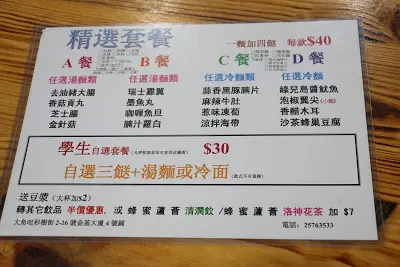 精選套餐
一麵加四餸 每款$40
A 餐 B 餐 C 餐 D 餐
任選湯麵類 任選湯麵類 任選冷麵類 任選冷麵類
去油豬大腸 瑞士雞翼 蒜香黑豚腩片 綠兒島醬魷魚
香菇貢丸 墨魚丸 麻辣牛肚 泡椒翼尖(小辣)
芝士腸 咖喱魚旦 惹味凍荀 香醋木耳
金針菇 腩汁蘿白 涼拌海帶 沙茶蜂巢豆腐
學生自選套餐 $30
自選三餸+湯麵或冷面
送豆漿 (大杯加$2)
轉其它飲品 半價優惠, 或 蜂蜜蘆薈 清潤飲/蜂蜜蘆薈 洛神花茶 加 $7
大角咀杉樹街 2-16 號金基大廈 4 號鋪 電話: 25763533